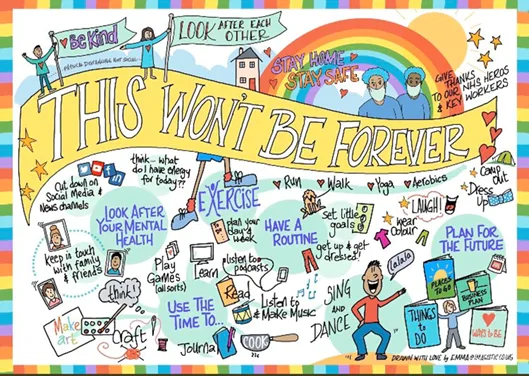 Be Kind
LOOK AFTER EACH
OTHER
PHYSICAL DISTANCING NOT SOCIAL
STAY HOME
STAY SAFE
GIVE
THANKS
TO OUR NHS HEROS
& KEY WORKERS
THIS WON'T BE FOREVER
Cut down on
Social Media &
News channels
think - what
do I have energy
for today??
EXERCISE
Run
Walk
Yoga
Aerobics
Camp
out
Dress
Up
LOOK AFTER
YOUR MENTAL
HEALTH
plan your
day &
week
HAVE A
ROUTINE
Set little
goals
get up & get
dressed!
LAUGH!
wear
Colour
PLAN FOR
THE FUTURE
keep in touch
with family
& friends
think!
Play
Games
(all sorts)
Learn
Listen to
podcasts
Read
Listen to
& Make Music
USE THE
TIME TO...
Make
art
Craft
Journal
COOK
SING
AND
DANCE
lalala
PLACES
TO GO
BUSINESS
PLAN
THINGS
to
DO
WAYS to BE
DRAWN WITH LOVE by EMMA@IMAGISTIC.CO.UK